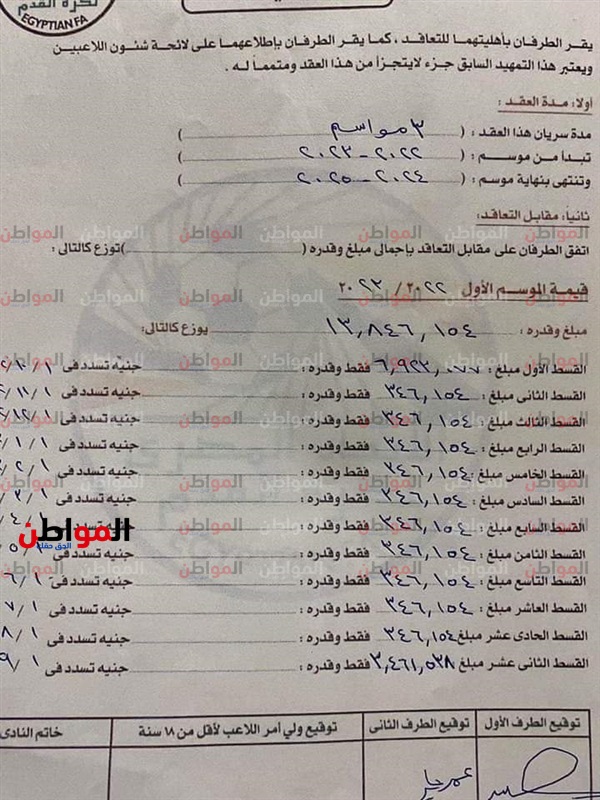 لكرة القدم
EGYPTIAN FA
يقر الطرفان بأهليتهما للتعاقد ، كما يقر الطرفان بإطلاعهما على لائحة شئون اللاعبين
ويعتبر هذا التمهيد السابق جزء لايتجزأ من هذا العقد ومتمماً له .
أولا: مدة العقد :
مدة سريان هذا العقد : ( ٣ مواسم )
تبدأ من موسم : ( ٢٠٢٢ - ٢٠٢٣ )
وتنتهى بنهاية موسم : ( ٢٠٢٤ - ٢٠٢٥ )
ثانياً: مقابل التعاقد:
اتفق الطرفان على مقابل التعاقد بإجمالى مبلغ وقدره ( )توزع كالتالى :
قيمة الموسم الأول ٢٠٢٢ / ٢٠٢٣
مبلغ وقدره : ١٣,٨٤٦,١٥٤ يوزع كالتالى:
القسط الأول مبلغ : ٦,٩٢٣,٠٧٧ فقط وقدره : جنيه تسدد فى ١٠/١
القسط الثانى مبلغ : ٣٤٦,١٥٤ فقط وقدره : جنيه تسدد فى ١١/١
القسط الثالث مبلغ : ٣٤٦,١٥٤ فقط وقدره : جنيه تسدد فى ١٢/١
القسط الرابع مبلغ : ٣٤٦,١٥٤ فقط وقدره : جنيه تسدد فى ١/١
القسط الخامس مبلغ : ٣٤٦,١٥٤ فقط وقدره : جنيه تسدد فى ٢/١
القسط السادس مبلغ : ٣٤٦,١٥٤ فقط وقدره : جنيه تسدد فى ٣/١
القسط السابع مبلغ : ٣٤٦,١٥٤ فقط وقدره : جنيه تسدد فى ٤/١
القسط الثامن مبلغ : ٣٤٦,١٥٤ فقط وقدره : جنيه تسدد فى ٥
القسط التاسع مبلغ : ٣٤٦,١٥٤ فقط وقدره : جنيه تسدد فى ٦/١
القسط العاشر مبلغ : ٣٤٦,١٥٤ فقط وقدره : جنيه تسدد فى ٧/١
القسط الحادى عشر مبلغ ٣٤٦,١٥٤ فقط وقدره : جنيه تسدد فى ٨/١
القسط الثانى عشر مبلغ ٣,٤٦١,٥٣٨ فقط وقدره : جنيه تسدد فى ٩/١
المواطن
الحق معك
توقيع الطرف الأول توقيع الطرف الثانى توقيع ولي أمر اللاعب لأقل من ١٨ سنة خاتم النادى
عمر جابر